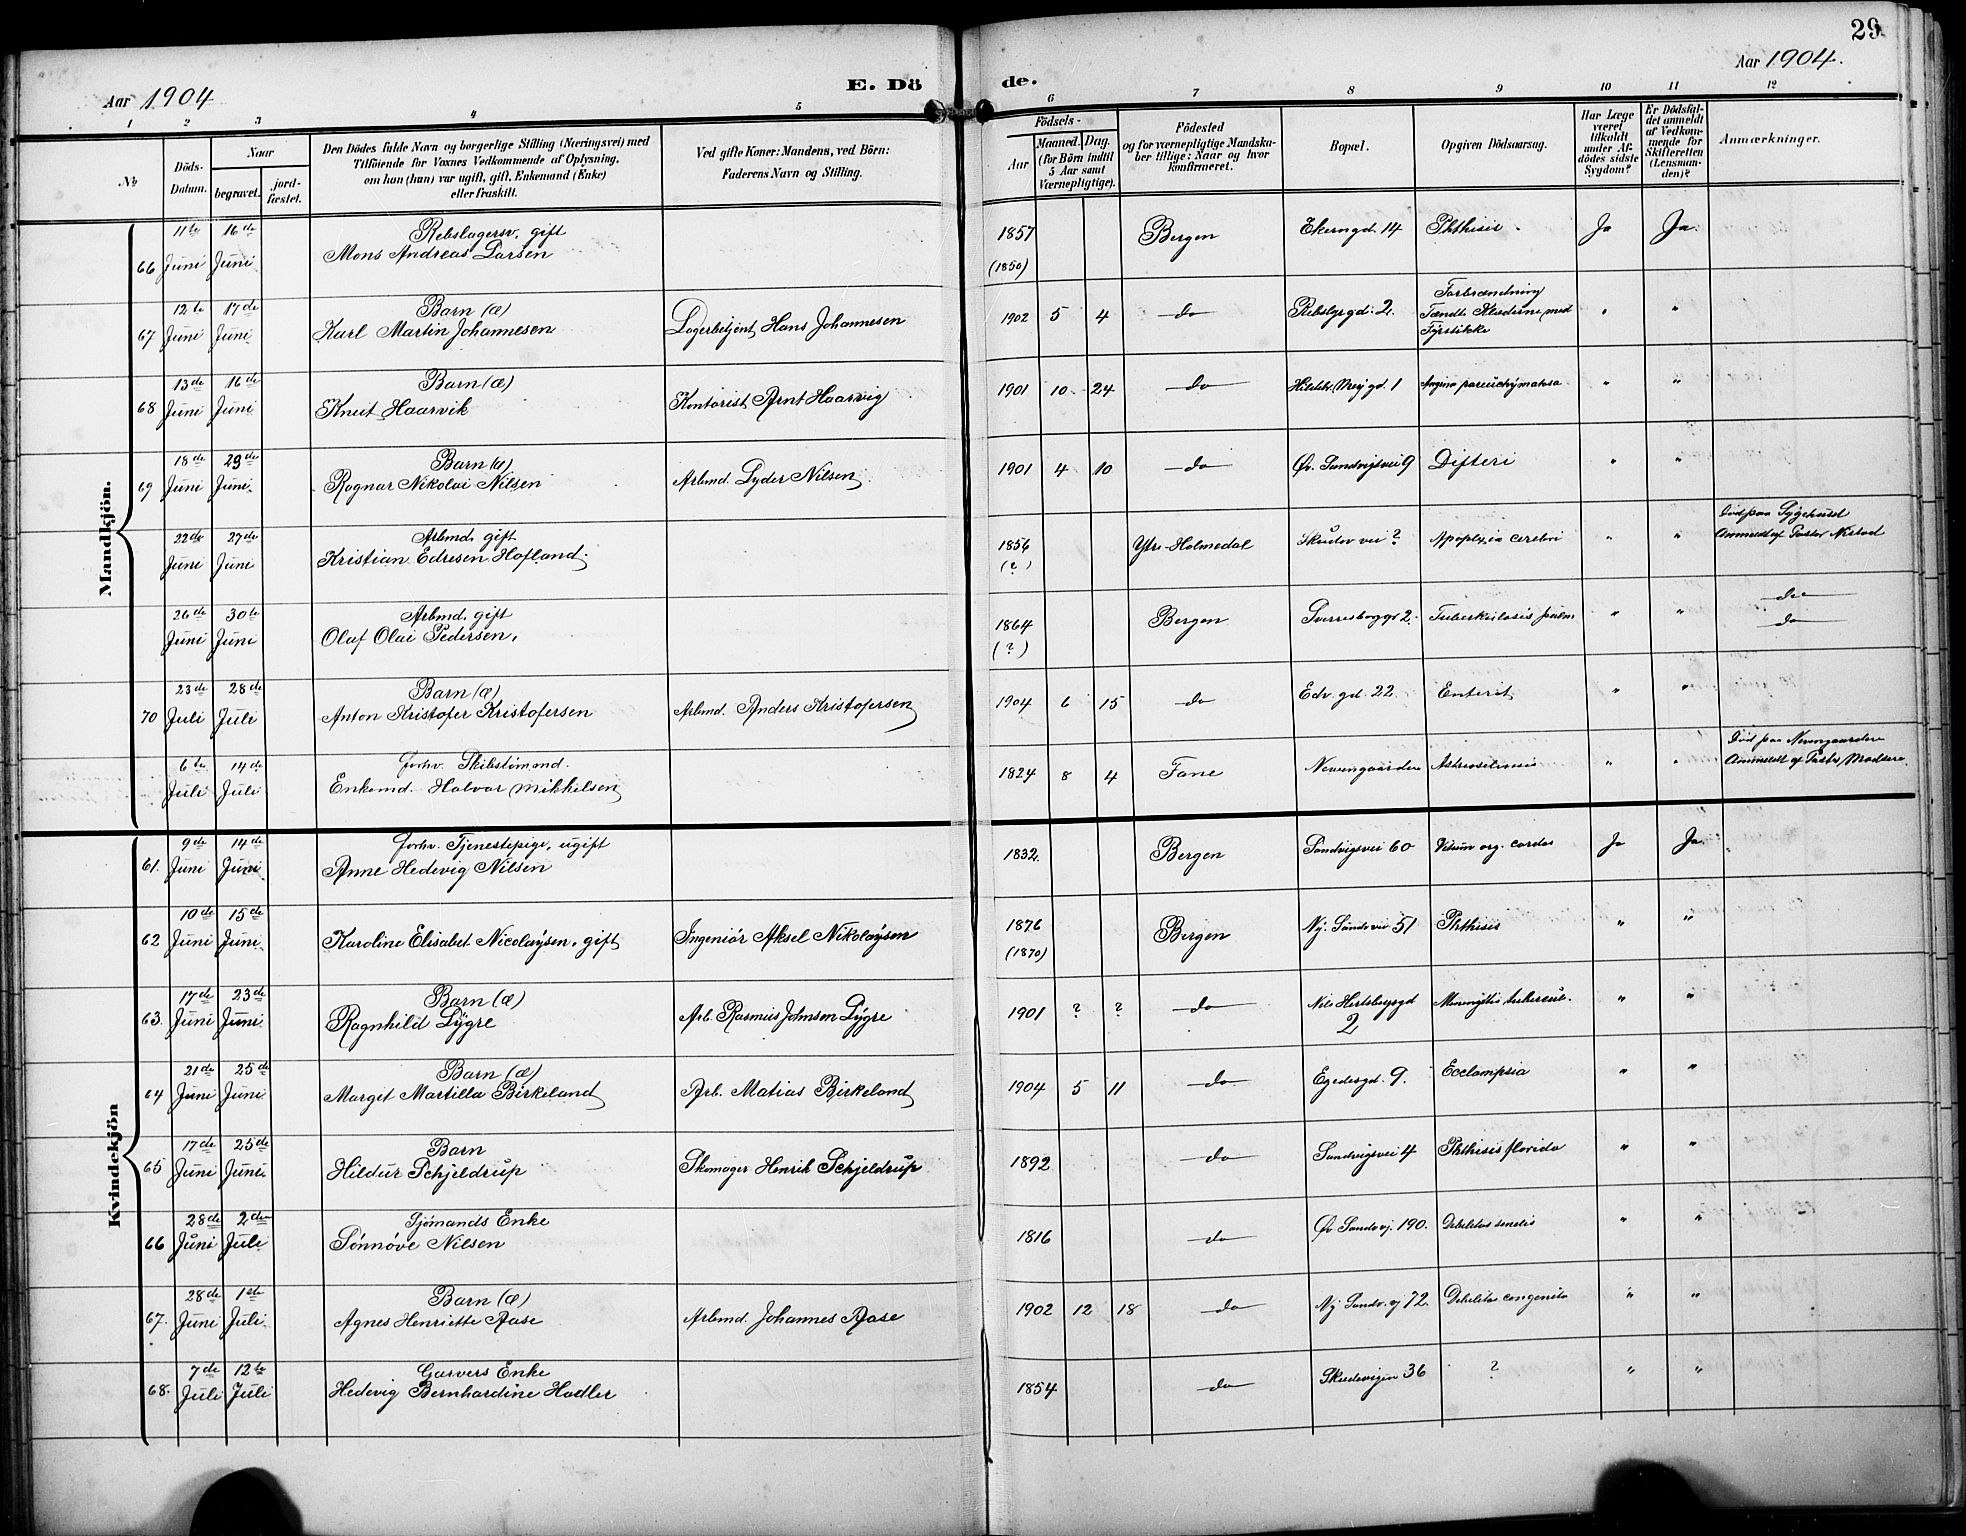 29
Aar 1904
E. Dö de.
Aar 1904.
1 2 3 4 5 6 7 8 9 10 11 12
No
Döds-Datum.
Naar
begravet.
jord-fæstet.
Den Dödes fulde Navn og borgerlige Stilling (Næringsvei) med
Tilföiende for Voxnes Vedkommende af Oplysning,
om hun (han) var ugift, gift, Enkemand (Enke)
eller fraskilt.
Ved gifte Koner: Mandens, ved Börn:
Faderens Navn og Stilling.
Födsels-
Aar
Maaned. Dag.
(for Börn indtil
5 Aar samt
Værnepligtige).
Födested
og for værnepligtige Mandska-
ber tillige: Naar og hvor
konfirmeret.
Bopæl.
Opgiven Dödsaarsag.
Har Læge
været
tilkaldt
under Af-
dödes sidste
Sygdom?
Er Dödsfal-
det anmeldt
af Vedkom-
mende for
Skifteretten
(Lensman-
den)?
Anmærkninger.
Mandkjön.
11te 16de Rebslagersv. gift 1857 Bergen Ekerngd. 14 Phthisis Ja Ja.
66 Juni Juni Mons Andreas Larsen (1850)
12te 17de Barn (æ) Forbrænding
67 Juni Juni Karl Martin Johannesen Lagerbetjent Hans Johannesen 1902 5 4 do Rebslgrgd. 2. Tændte Klæderne med " "
Fyrstikke
13de 16de Barn (æ)
68 Juni Juni Knut Haarvik Kontorist Arnt Haarvig 1901 10 24 do gd 1 Angina parenchymatosa " "
18de 29de Barn (æ)
69 Juni Juni. Ragnar Nikolai Nilsen Arbmd. Lyder Nilsen 1901 4 10 do Øv. Sandvigsvei 9 Difteri " "
22de 27de Arbmd. gift 1856 Ytre-Holmedal vei ? Apoplexia cerebri " " Død paa Sygehuset
Juni Juni Kristian Edresen Hofland (?) Anmeldt af Pastor
26de 30te Arbmd. gift 1864 Bergen Sverresborggt 2. Tuberkulosis pulm " " do
Juni Juni Olaf Olai Pedersen. (?) do
23de 28de Barn (æ)
70 Juli Juli Anton Kristofer Kristofersen Arbmd. Anders Kristofersen 1904 6 15 do Edv. gd. 22 Enterit " "
6te 14de forhv. Skibstømmd. Død paa
Juli Juli Enkemd. Halvor Mikkelsen 1824 8 4 Fane " " Anmeldt af Pastor Madsen.
Kvindekjön
9de 14de forhv. Tjenestepige, ugift 1832. Bergen Sandvigsvei 60 Vitium org. cordis Ja Ja.
61. Juni Juni Anne Hedevig Nilsen
10de 15de
62 Juni Juni. Karoline Elisabet Nicolaÿsen, gift Ingeniør Aksel Nikolaÿsen 1876 (1870) Bergen Ny. Sandvei 51 Phthisis " "
17de 23de Barn (æ)
63. Juni Juni. Ragnhild Lÿgre Arb. Rasmus Johnsen Lÿgre 1901 ? ? do Nils gd 2 Meningitis tubercul. " "
21de 25de Barn (æ)
64 Juni Juni Margit Martilla Birkeland Arb. Matias Birkeland 1904 5 11 do Egedesgd. 9. Ecclampsia " "
17de 25de Barn
65 Juni Juni. Hildur Schjeldrup Skomager Henrik Schjeldrup 1892 do Sandvigsvei 4 Phthisis florida " "
28de 2den Sjømands Enke
66 Juni Juli Sønnøve Nilsen 1816 do Øv Sandvj. 190. Debilitas senilis " "
28de 1ste Barn (æ)
67. Juni Juli. Agnes Henriette Aase Arbmd. Johannes Aase 1902 12 18 do Ny Sandv. vj 72. Debilitas congenita " "
7de 12te Garvers Enke
68. Juli Juli Hedevig Bernhardine Hadler 1854 do Skudevigen 36 ? " "